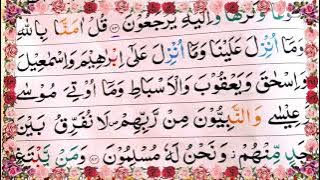 وَّكَرْهًا وَّاِلَيْهِ يُرْجَعُوْنَ ۝ قُلْ اٰمَنَّا بِاللّٰهِ
وَمَآ اُنْزِلَ عَلَيْنَا وَمَآ اُنْزِلَ عَلٰٓى اِبْرٰهِيْمَ وَاِسْمٰعِيْلَ
وَاِسْحٰقَ وَيَعْقُوْبَ وَالْاَسْبَاطِ وَمَآ اُوْتِيَ مُوْسٰى
عِيْسٰى وَالنَّبِيُّوْنَ مِنْ رَّبِّهِمْ لَا نُفَرِّقُ بَيْنَ
حَدٍ مِّنْهُمْ وَنَحْنُ لَهٗ مُسْلِمُوْنَ ۝ وَمَنْ يَّبْتَغِ